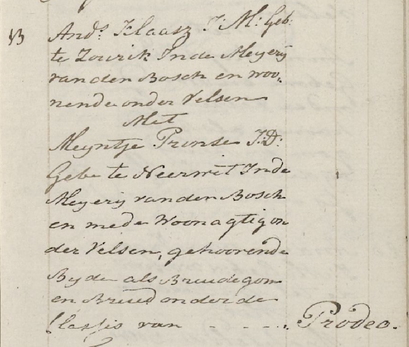 13 And.s Klaasz J: M: Geb:
te Zourik Inde Meyerij
van den Bosch en woo„
nende onder Velsen
Met
Meyntje Prinse J:D:
Gebe te Neerwit Inde
Meyerij van den Bosch
en mede Woonagtig on
der Velsen, gehoorende
Byde als Bruidegom
en Bruid onder de
Classis van - - - - Prodeo.